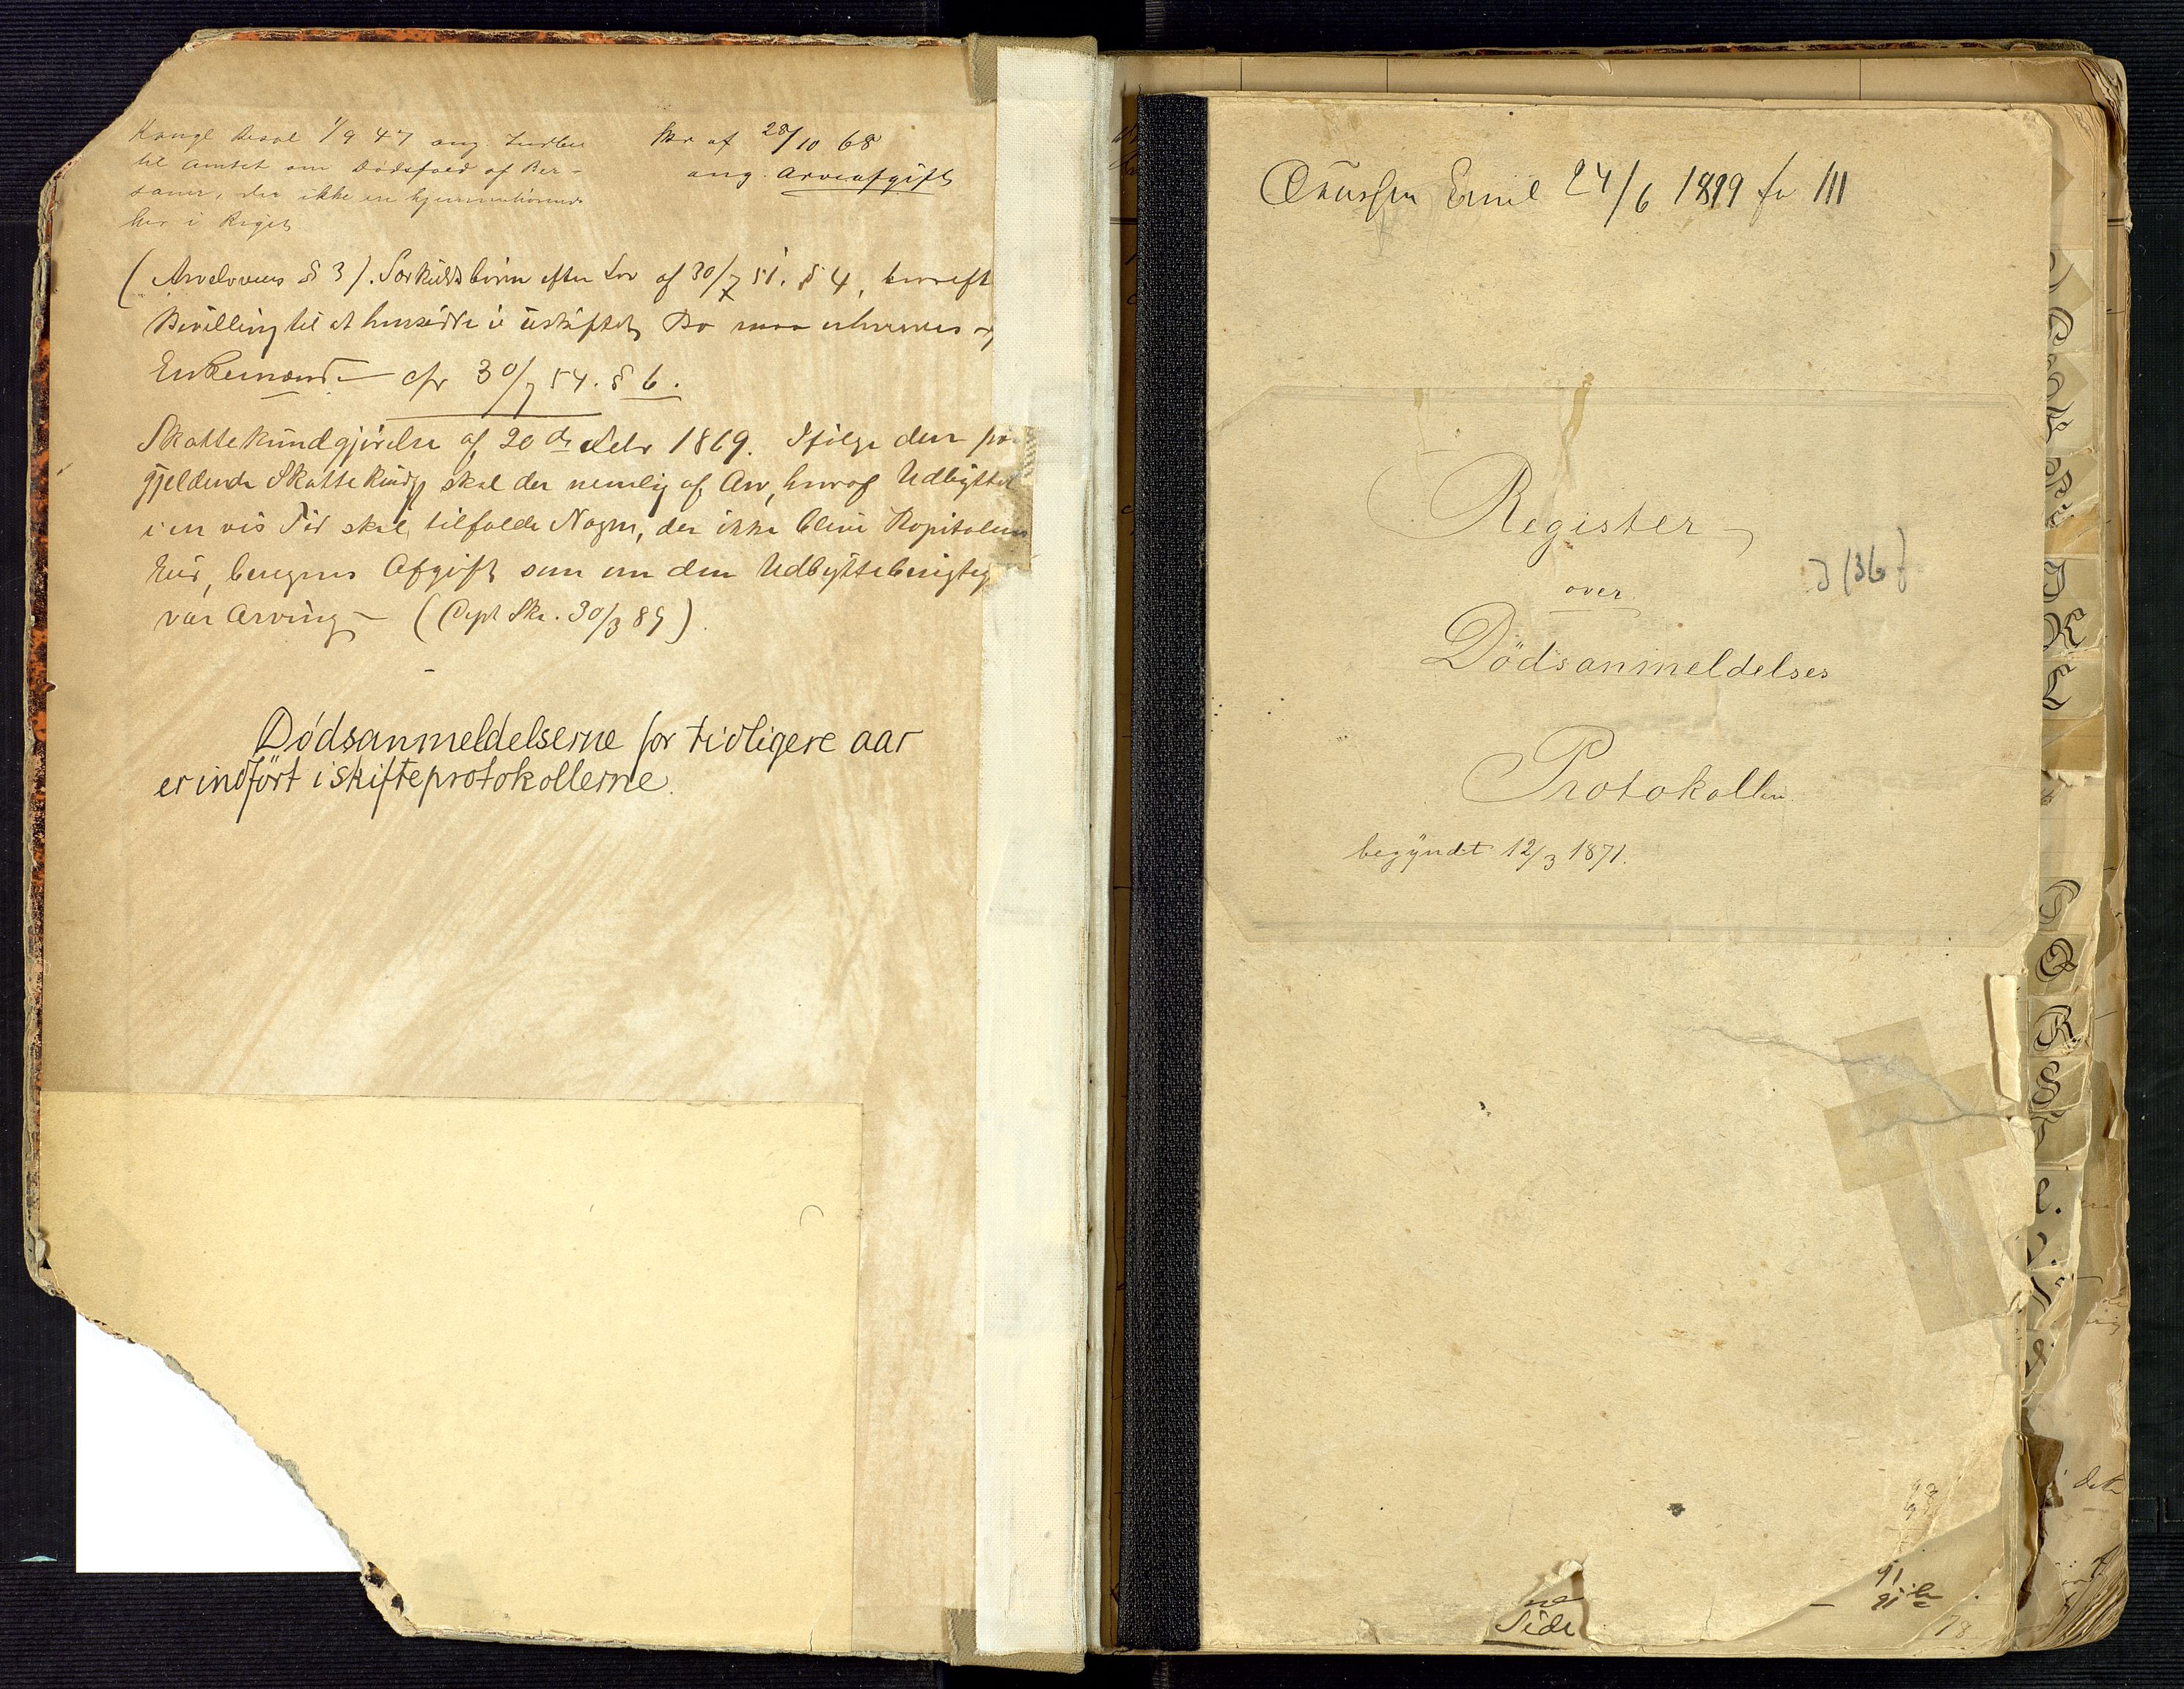 Kongl Resol 1/9 47 ang. Indber
til Amtet om Dödsfald af Per-
soner, der ikke ere hjemmehörende
her i Riget
Skr af 28/10 68
ang. Arveafgift
(Arvelovens § 3). Særkuldsbörn efter Lov af 30/7 51. § 4, hvoreft
Bevilling til at hensidde i uskiftet Bo maa erhverves af
Enkemænd cfr 30/7 54. § 6.
Skattekundgjörelse af 20de Febr 1869. Ifölge den
gjeldende Skattekundg skal der nemlig af Arv, hvoraf Udbyttet
i en vis Tid skal tilfalde Nogen, der ikke bliver Kapitalens
Eier, beregnes Afgift som om den Udbytteberigtig
var Arving (Dept Skr. 30/3 89).
Dödsanmeldelserne for tidligere aar
er indfört i skifteprotokollerne.
Emil 24/6 1899 fo 111
Register
over
Dödsanmeldelses
Protokollen
begyndt 12/3 1871.
I
K
L
Q
R
S
Side
91
91
78